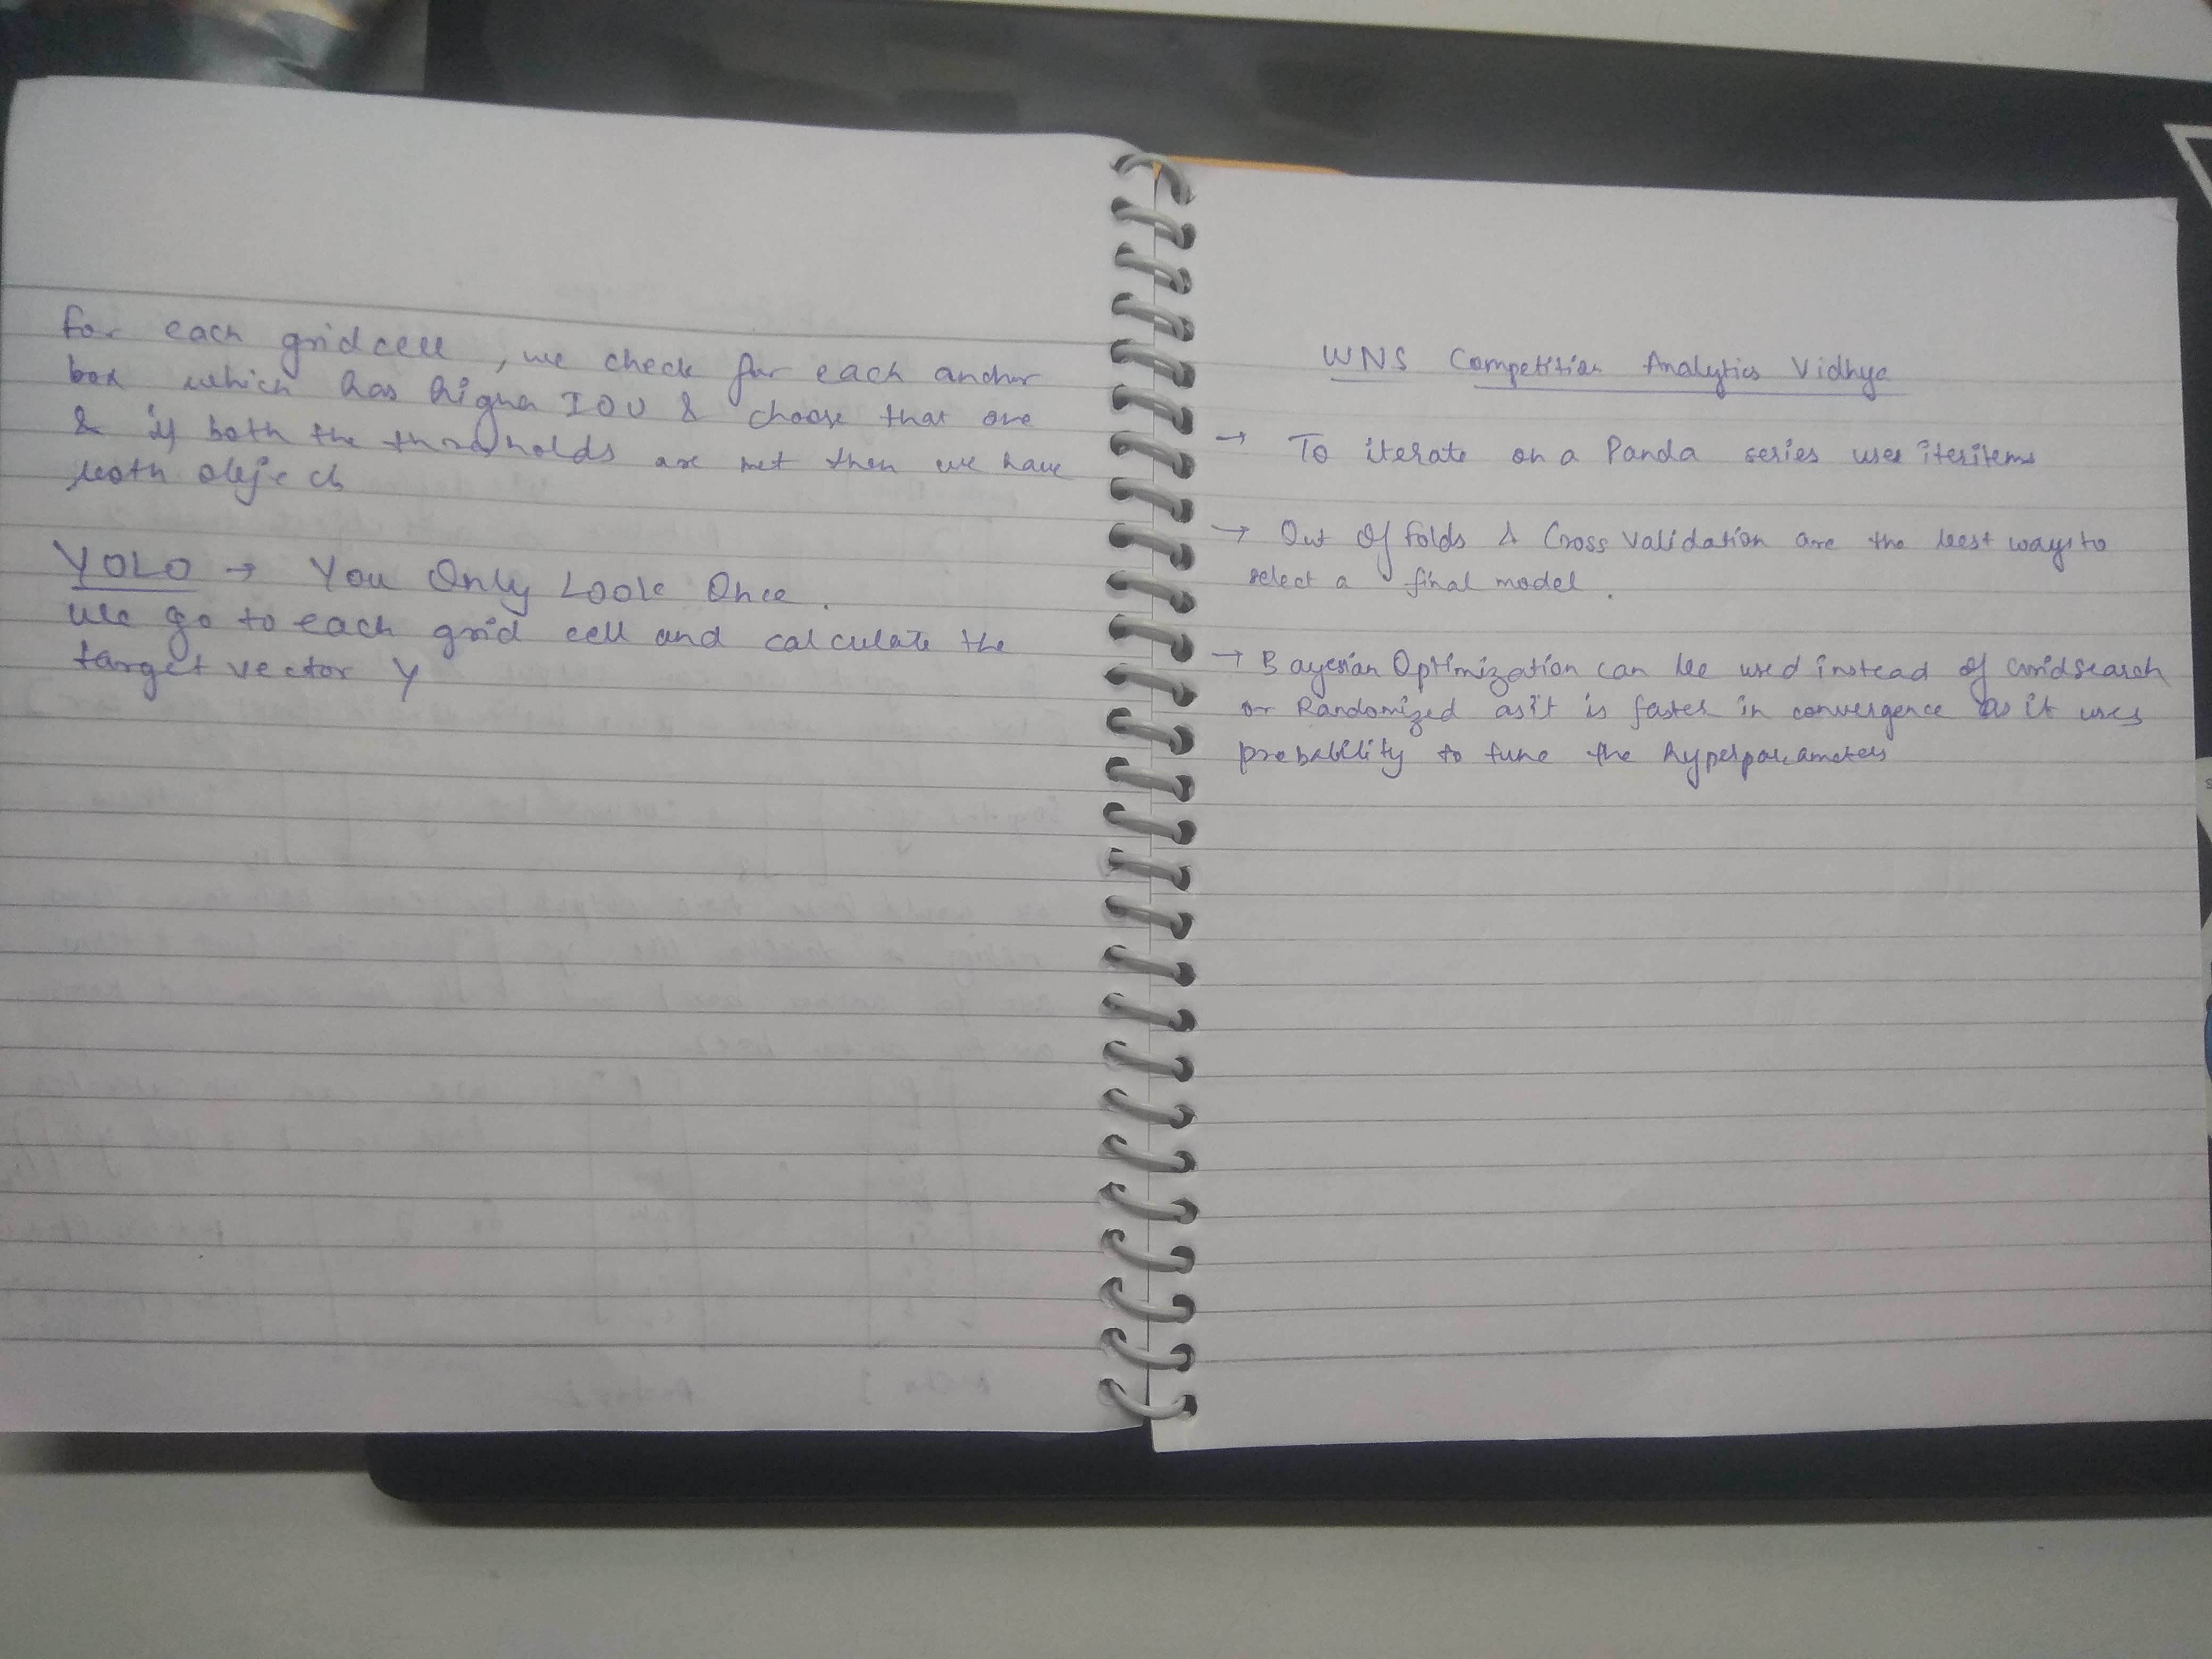 For each gridcell, we check for each anchor
box which has higher IOU & choose that one
& if both the thresholds are met then we have
both objects
YOLO → You Only Look Once.
We go to each grid cell and calculate the
target vector y
WNS Competition Analytics Vidhya
→ To iterate on a Panda series use iteritems
→ Out Of Folds & Cross Validation are the best ways to
select a final model.
→ Bayesian Optimization can be used instead of Gridsearch
or Randomized as it is faster in convergence as it uses
probability to tune the hyperparameters